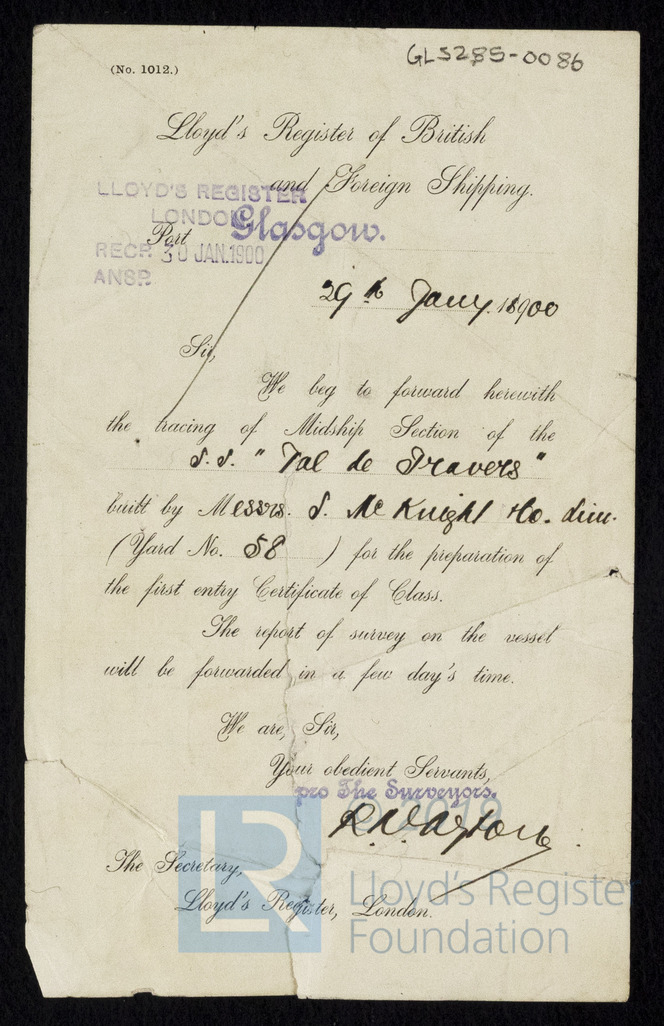 (No. 1012.)
GLS285-0086
Lloyd's Register of British
and Foreign Shipping.
LLOYD'S REGISTER
LONDON
Port Glasgow.
RECP. 30 JAN.1900
ANSP.
29th Jany. 1900
Sir,
We beg to forward herewith
the tracing of Midship Section of the
S.S. "Val de Travers"
built by Messrs. S. McKnight & Co. Lim.
(Yard No. 58 ) for the preparation of
the first entry Certificate of Class.
The report of survey on the vessel
will be forwarded in a few day's time.
We are, Sir,
Your obedient Servants,
pro The Surveyors.
© 2019
The Secretary,
Lloyd's Register, London.
LR
Lloyd's Register
Foundation